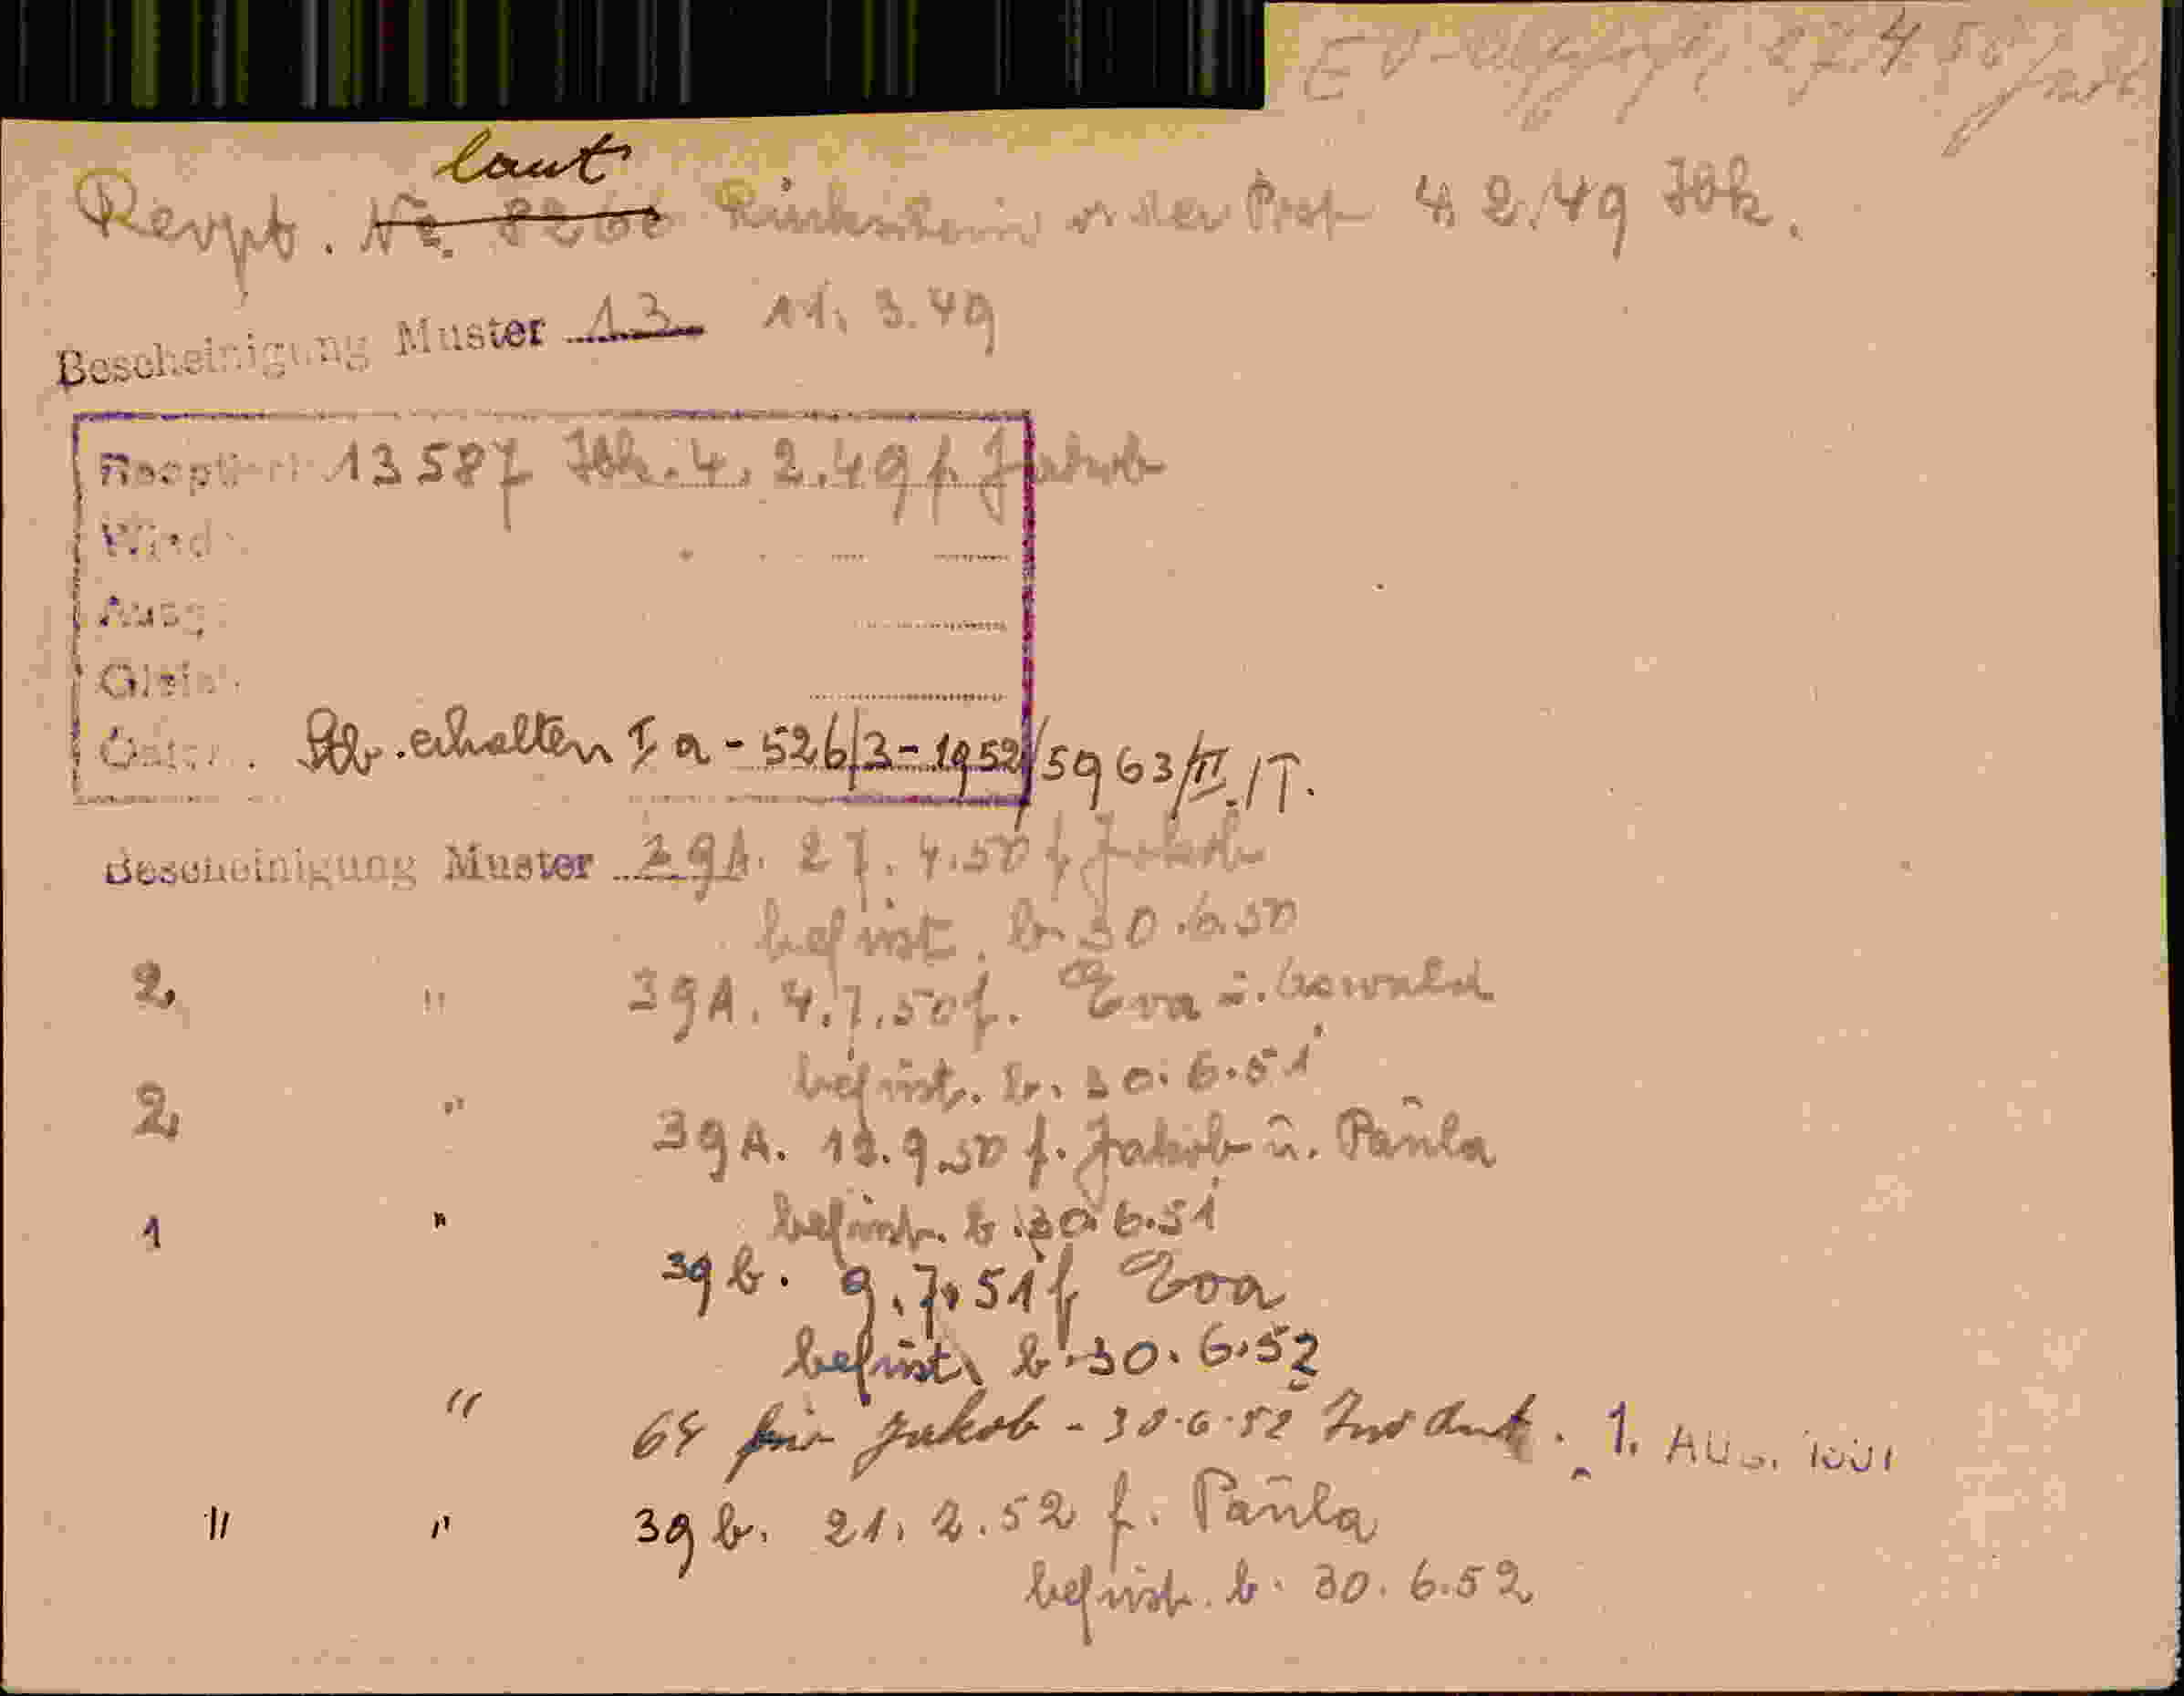 laut
Rezept. Nr. Rückschein v der Post 4. 2.49 Jbk.
Bescheinigung Muster 13 11. 3.49
13587 Jbk. 4. 2.49 f. Jakob
Wird
Ausg
Gleic
Stb. erhalten I a - 526/3 - 1952/5963/II./T.
Bescheinigung Muster 39A. 27. 4.50 f Jakob
befrist. b. 30.6.50
2, " 39A. 4.7.50 f. Eva u. Oswald
befrist. b. 30.6.51
2, " 39A. 12.9.50 f. Jakob u. Paula
befrist. b. 30.6.51
1 " 39 b. 9.7.51 f Eva
befrist. b. 30.6.52
" 64 für Jakob - 30.6.52 1. AUG.
" " 39 b. 21. 2.52 f. Paula
befrist. b. 30.6.52